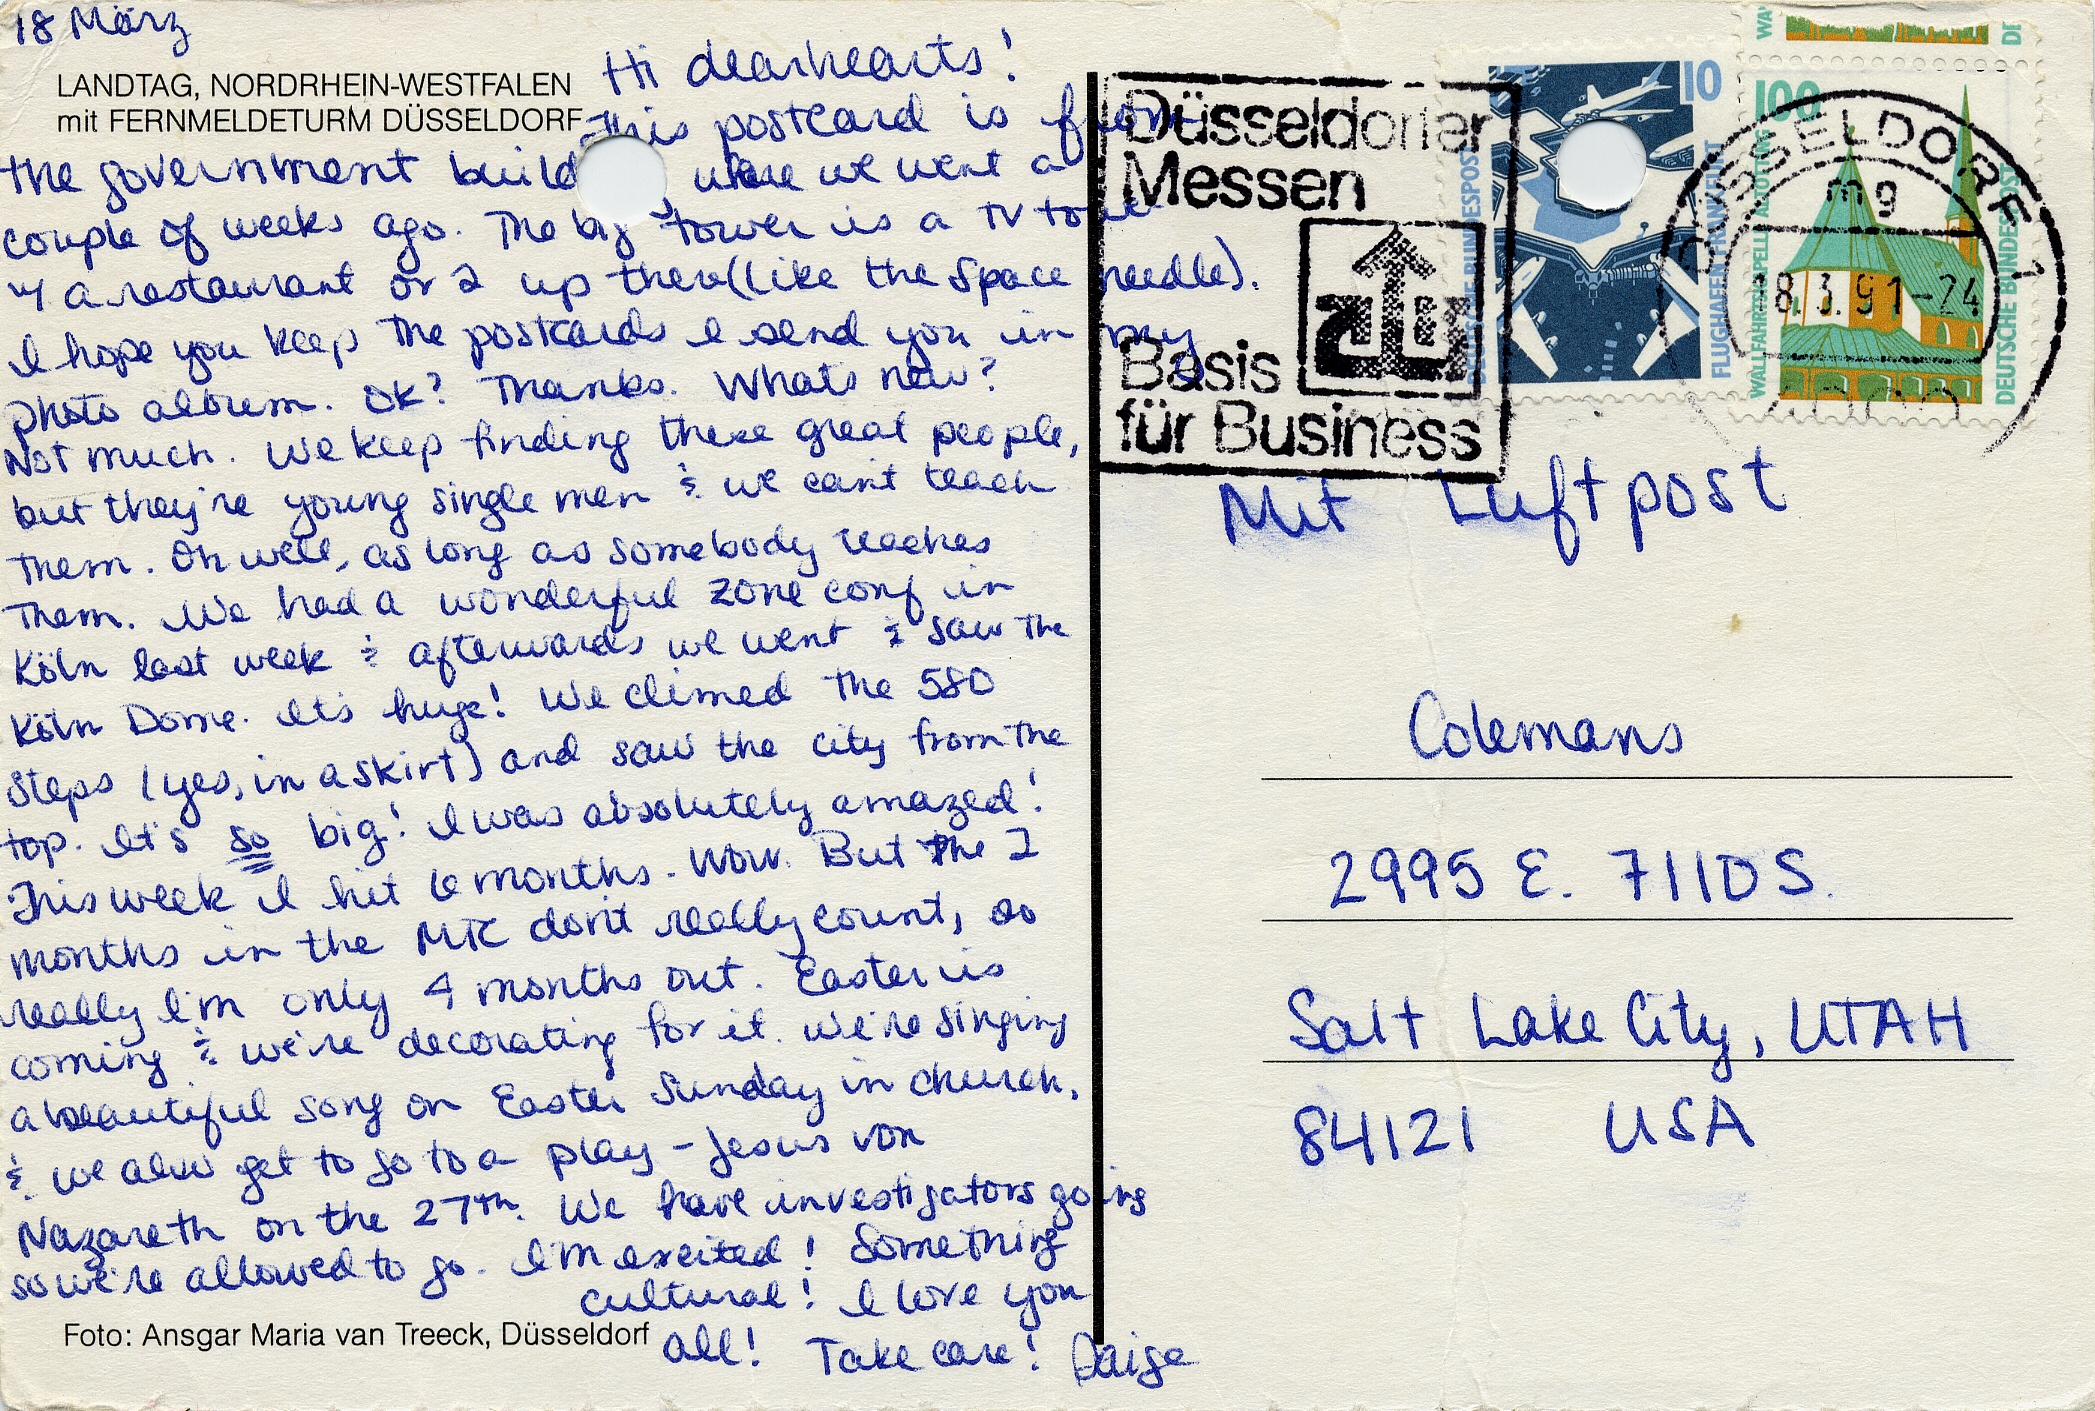 18 März
LANDTAG, NORDRHEIN-WESTFALEN
mit FERNMELDETURM DÜSSELDORF
Hi dearhearts!
This postcard is from
the government build where we went a
couple of weeks ago. The big tower is a TV tower
w/ a restaurant or 2 up there (like the space needle).
I hope you keep the postcards I send you in my
photo album. OK? Thanks. Whats new?
Not much. We keep finding these great people,
but they're young single men & we can't teach
them. Oh well, as long as somebody teaches
them. We had a wonderful zone conf in
Köln last week & afterwards we went & saw the
Köln Dome. It's huge! We climed the 580
steps (yes, in a skirt) and saw the city from the
top. It's so big! I was absolutely amazed!
This week I hit 6 months. Wow. But the 2
months in the MTC don't really count, so
really I'm only 4 months out. Easter is
coming & we're decorating for it. We're singing
a beautiful song on Easter Sunday in church.
& we also get to go to a play - Jesus von
Nazareth on the 27th. We have investigators going
so we're allowed to go. I'm excited! Something
cultural! I love you
all! Take care! Paige
Foto: Ansgar Maria van Treeck, Düsseldorf
Düsseldorfer
Messen
Basis
für Business
10
FLUGHAFEN FRANKFURT
DEUTSCHE BUNDESPOST
WA
DE
100
WALLFAHRTSKAPELLE ALTÖTTING
DEUTSCHE BUNDESPOST
DÜSSELDORF 1
mg
18.3.91-24
4000
Mit Luftpost
Colemans
2995 E. 7110 S.
Salt Lake City, UTAH
84121 USA